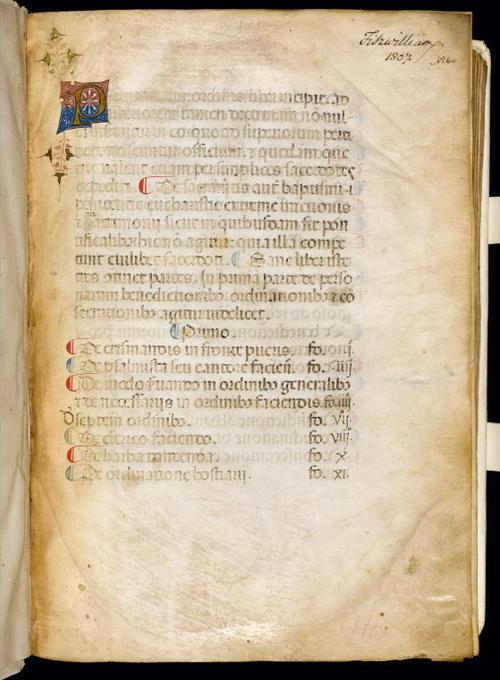 Fitzwilliam
1807
ordinis liber incipit ad
tamen doctrinam nonul
in eo quo ad superiorum perti
net officium & quedam que
valent etiam per simplices sacerdotes
expediri. De sacramentis aut baptismi
penitentie eucharistie extreme unctionis
& matrimonii sicut in quibusdam fit pon
tificalibus hic non agitur quia illa compe
tunt cuilibet sacerdoti. Sane liber iste
tres continet partes. In prima parte de perso
narum benedictionibus ordinationibus & co
secrationibus agitur videlicet.
Primo.
De crismandis in fronte pueris. fo. iii
De psalmista seu cantore faciendo. fo. iiii
De modo servando in ordinibus generalibus
& de necessariis in ordinibus faciendis. fo. iiii.
De septem ordinibus. fo. vij.
De clerico faciendo. fo. viii.
De barba tondenda. fo. x.
De ordinatione hostiarii. fo. xi.